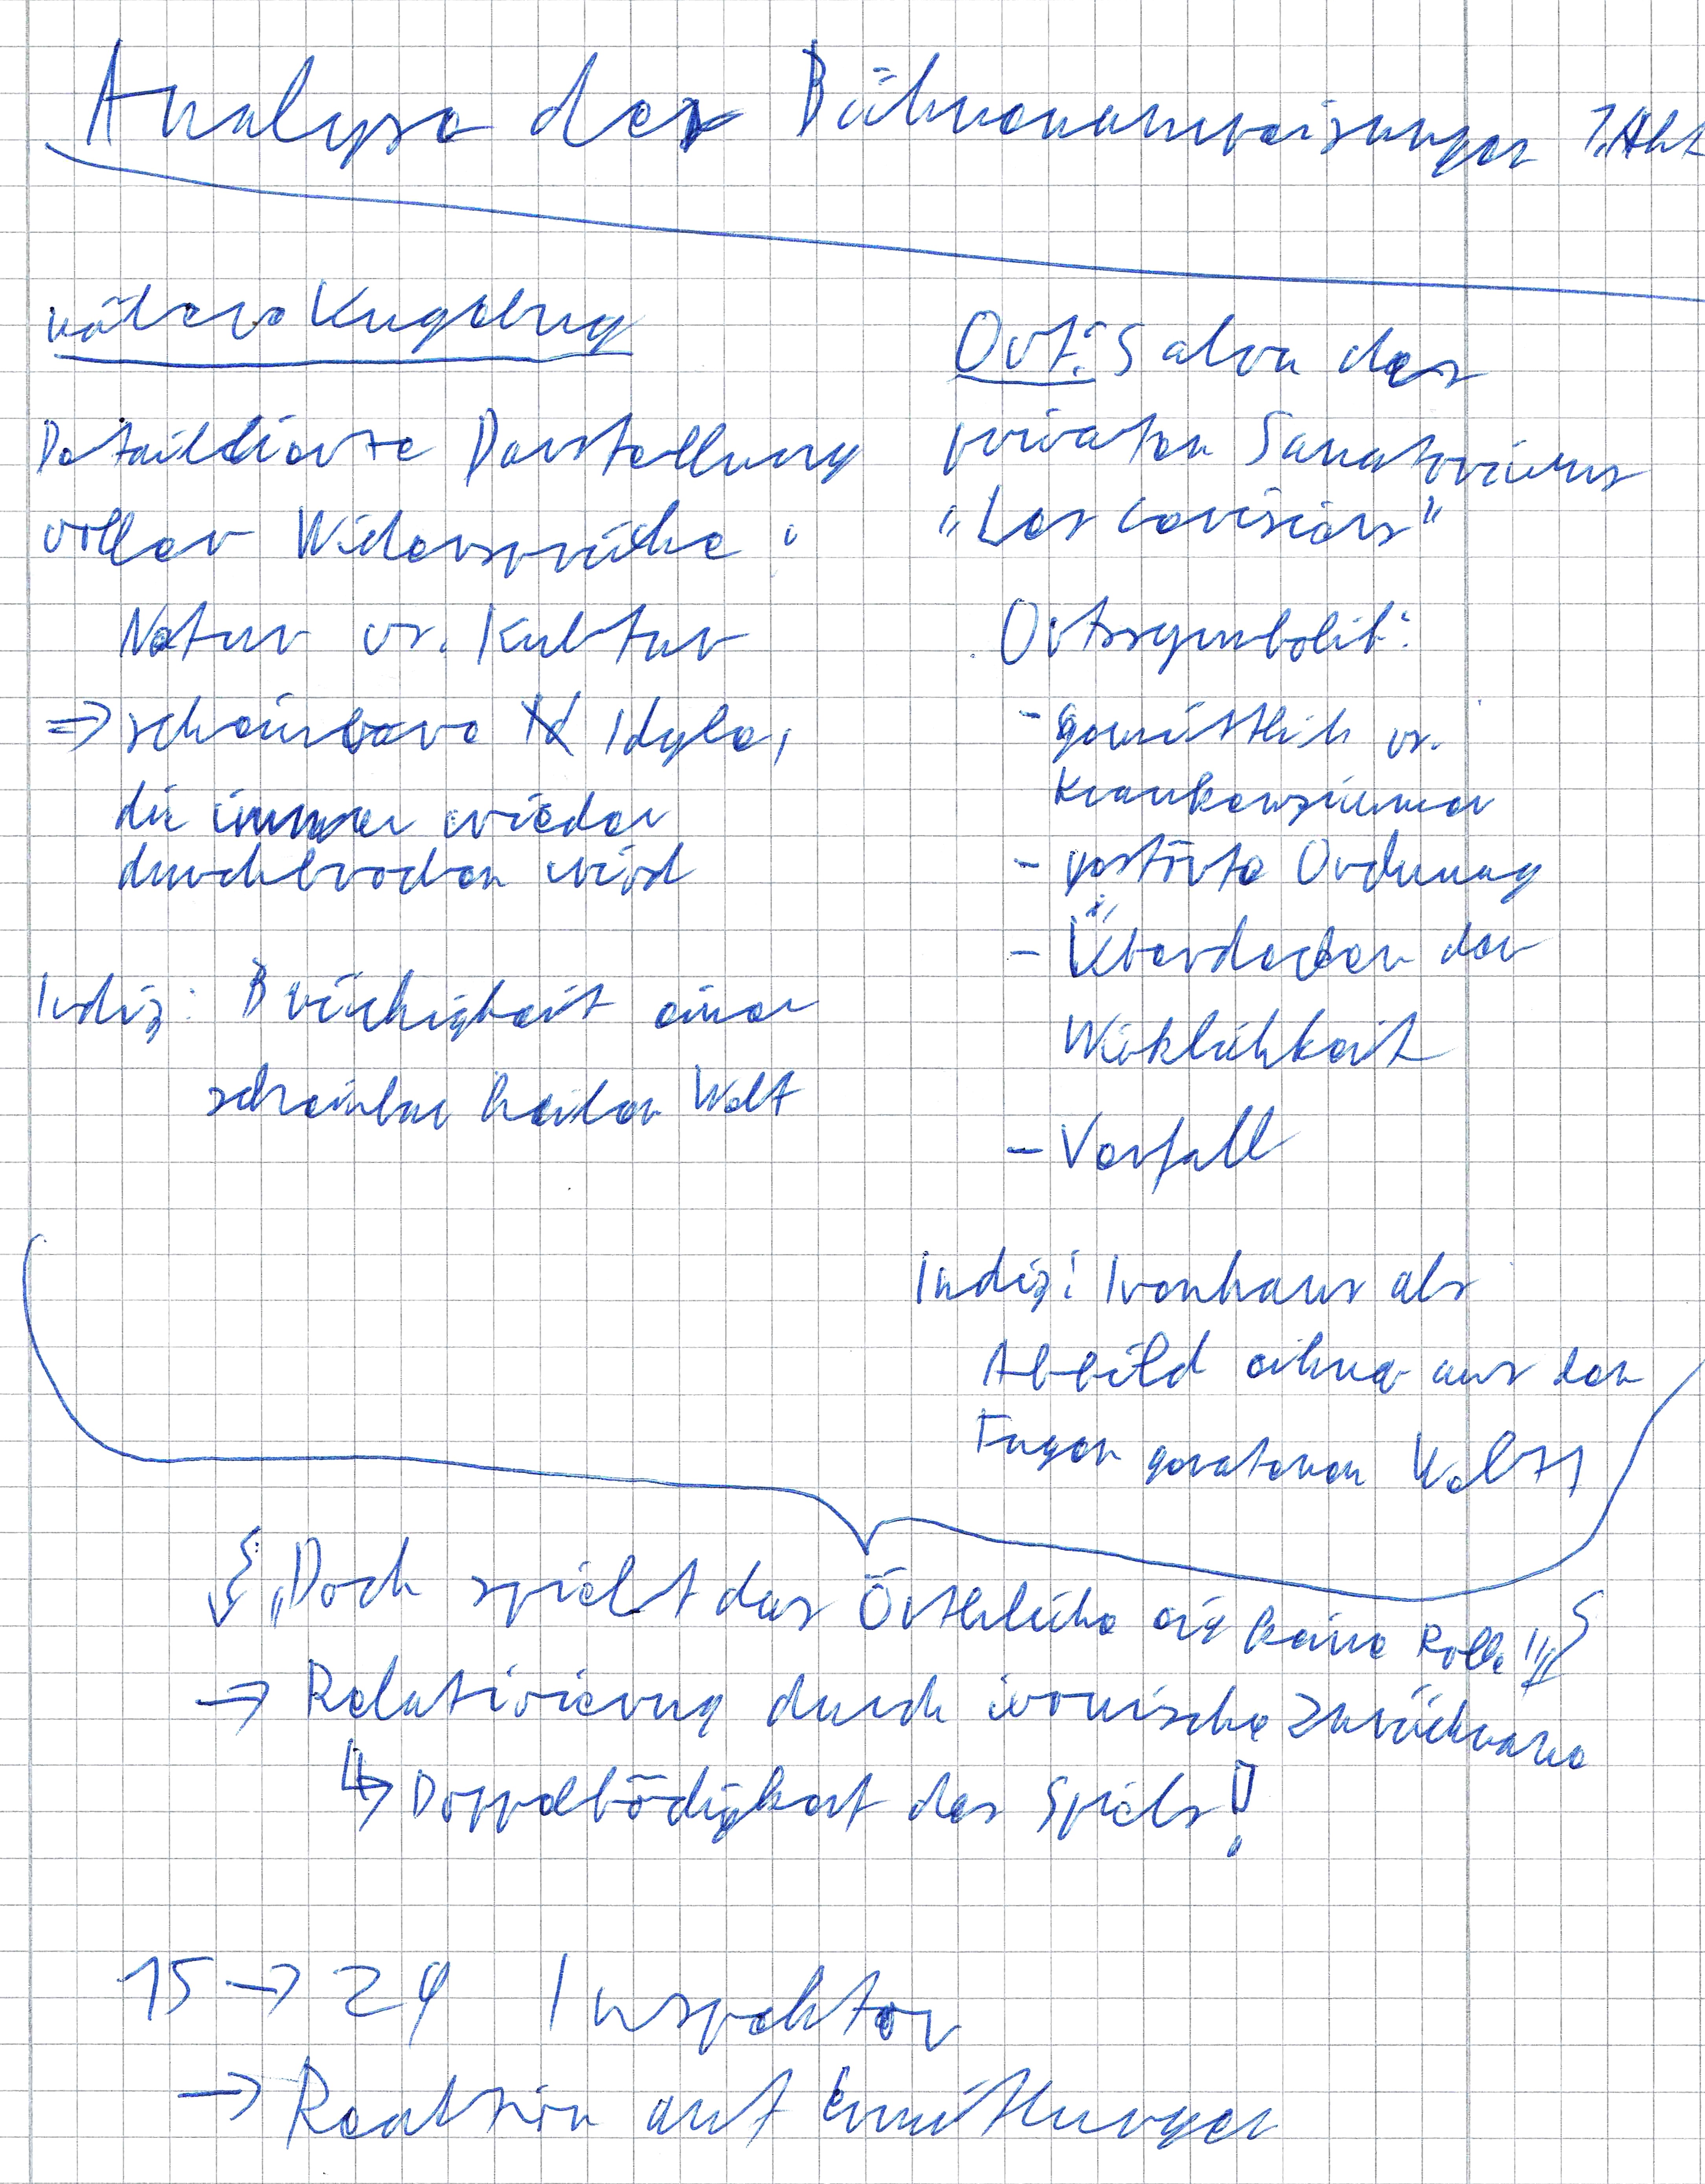 Analyse der Bühnenanweisungen 1. Akt
nähere Umgebung
Detaillierte Darstellung
voller Widersprüche:
Natur vs. Kultur
=> scheinbare Idylle,
die immer wieder
durchbrochen wird
Indiz: Brüchigkeit einer
scheinbar heilen Welt
Ort: Salon des
privaten Sanatoriums
"Les Cerisiers"
Ortssymbolik:
- gemütlich vs.
Krankenzimmer
- gestörte Ordnung
- Überdecken der
Wirklichkeit
- Verfall
Indiz: Irrenhaus als
Abbild einer aus den
Fugen geratenen Welt
„Doch spielt das Örtliche eig keine Rolle"
→ Relativierung durch ironische Zurücknahme
↳ Doppelbödigkeit des Spiels!
15 → 24 Inspektor
→ Reaktion auf Ermittlungen